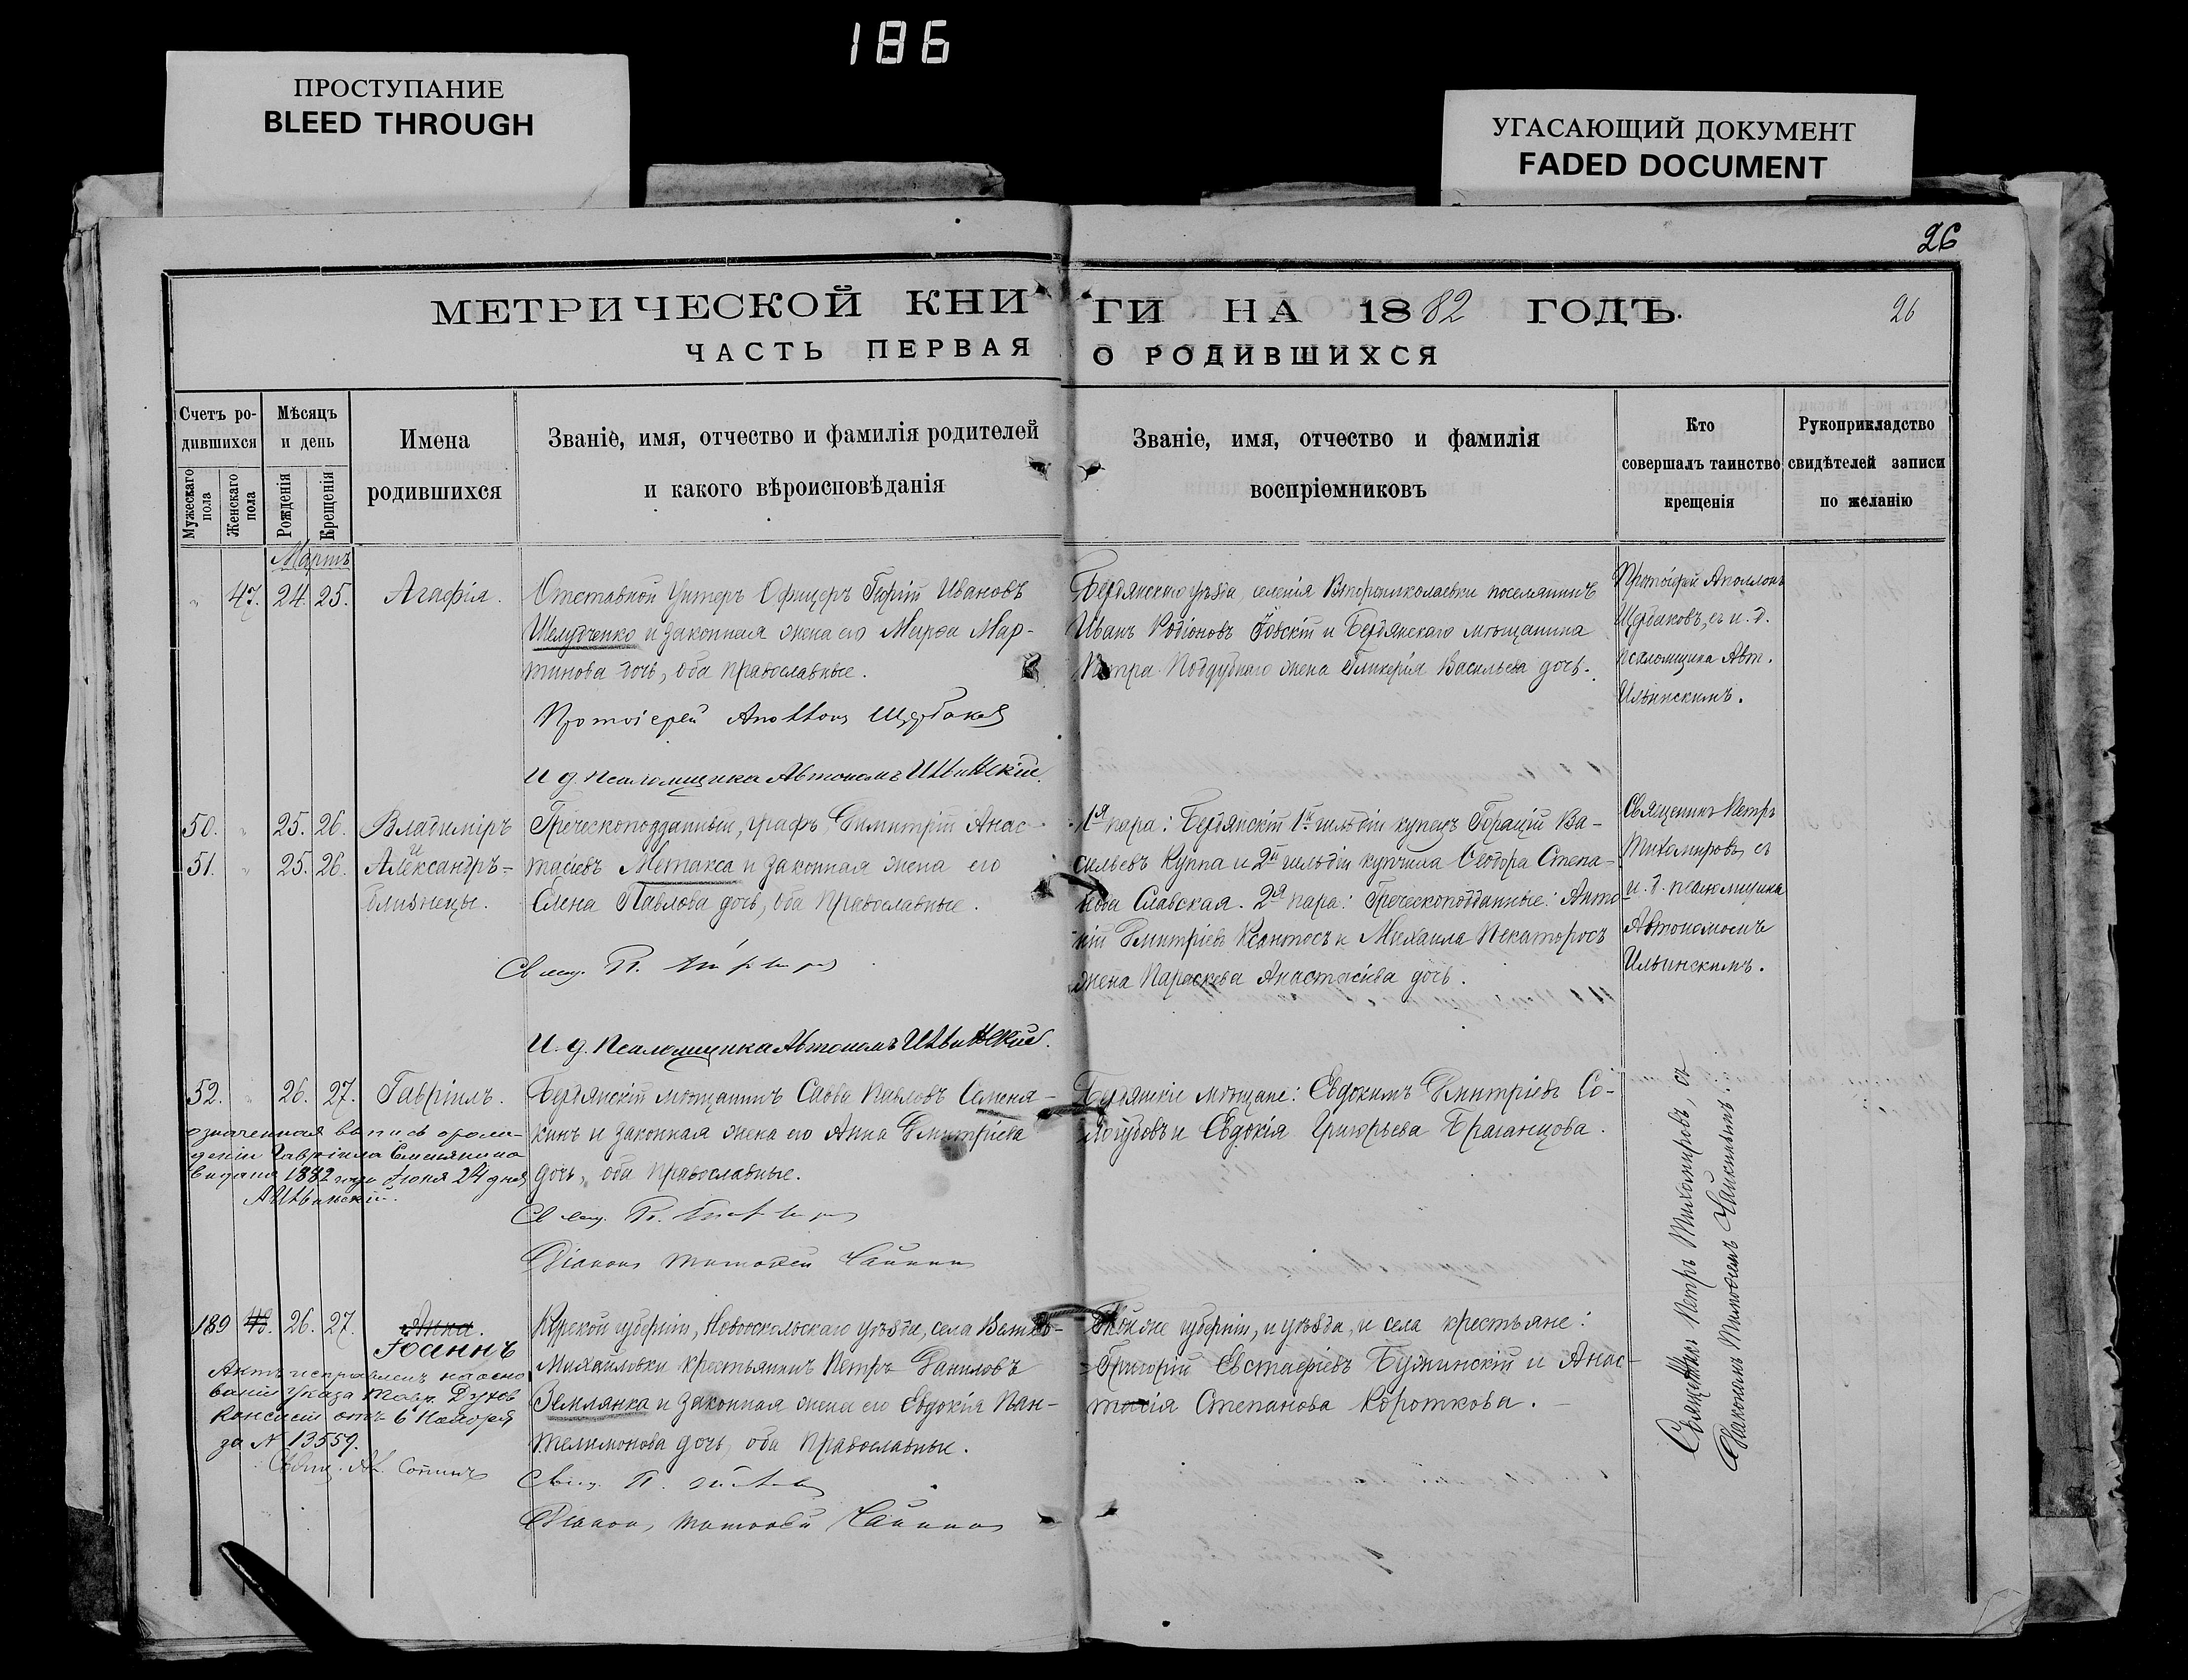 186
ПРОСТУПАНИЕ
BLEED THROUGH
УГАСАЮЩИЙ ДОКУМЕНТ
FADED DOCUMENT
26
МЕТРИЧЕСКОЙ КНИГИ НА 1882 ГОДЪ.
26
ЧАСТЬ ПЕРВАЯ О РОДИВШИХСЯ
Счетъ ро-
дившихся
Мужескаго
пола
Женскаго
пола
Мѣсяцъ
и день
Рожденія
Крещенія
Имена
родившихся
Званіе, имя, отчество и фамилія родителей
и какого вѣроисповѣданія
Званіе, имя, отчество и фамилія
воспріемниковъ
Кто
совершалъ таинство
крещенія
Рукоприкладство
свидѣтелей записи
по желанію
Мартъ
" 47. 24. 25. Агафія.
Отставной Унтеръ Офицеръ Ивановъ
Шелудченко и законная жена его Марѳа Мар-
тинова дочь, оба православные.
Протоіерей Аполлонъ Щербаковъ
И д. псаломщика Автономъ Ильинскій.
Бердянскаго уѣзда, селенія Второниколаевки поселянинъ
Иванъ Родіоновъ и Бердянскаго мѣщанина
Петра Поддубнаго жена Гликерія Васильева дочь.
Протоіерей Аполлонъ
Щербаковъ, съ и. д.
псаломщика Авт.
Ильинскимъ.
50. " 25. 26. Владиміръ
и
51. " 25. 26. Александръ-
близнецы.
Греческоподданный, графъ Димитрій Анас-
тасіевъ Метакса и законная жена его
Елена Павлова дочь, оба Православные.
Свящ. П.
И. д. Псаломщика Автономъ Ильинскій.
1я пара: Бердянскій 1й гильдіи купецъ Горацій Ва-
сильевъ Куппа и 2й гильдіи купчиха Ѳеодора Степа-
нова Славская. 2я пара: Греческоподданные: Анто-
ній Дмитріевъ Ксантосъ и Михаила Пекаторосъ
жена Параскева Анастасіева дочь.
Священникъ Петръ
Тихомировъ, съ
и. д. псаломщика
Автономомъ
Ильинскимъ.
52. " 26. 27. Гавріилъ.
означенная выпись о рож-
деніи Гавріила Семенякина
выдана 1882 года Іюня 24 дня
А Ильинскій.
Бердянскій мѣщанинъ Савва Павловъ Семеня-
кинъ и законная жена его Анна Дмитріева
дочь, оба Православные.
Свящ. П.
Діаконъ Тимоѳей
Бердянскіе мѣщане: Евдокимъ Дмитріевъ Со-
логубовъ и Евдокія Григорьева Браганцова.
Священникъ Петръ Тихомировъ, съ
Діакономъ Тимоѳеемъ
189 48. 26. 27. Анна.
Іоаннъ
Актъ исправленъ на осно
ваніи Указа Тавр. Духов
Консист отъ 6 Ноября
за № 13559.
Свящ.
Курской губерніи, Новооскольскаго уѣзда, села Велико-
Михайловки крестьянинъ Петръ Даниловъ
Землянка и законная жена его Евдокія Пан-
телимонова дочь, оба православные.
Свящ. П.
Діаконъ Тимоѳей
Той же губерніи, и уѣзда, и села крестьяне:
Григорій Евстафіевъ Бужинскій и Анас-
тасія Степанова Короткова.